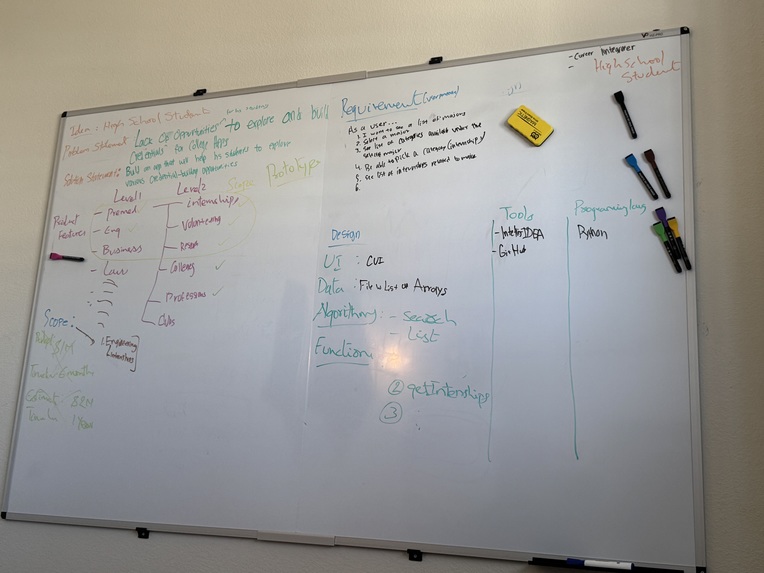 - Career Integrator
- High School Student
Idea: High School Student
Problem Statement: Lack of Opportunities to explore and build
Credentials for College Apps
Solution Statement: Build an app that will help hs students to explore
various credential-building opportunities
Level 1
Level 2
Scope: Prototype
Product Features
- Premed
- Eng
- Business
- Law
internships
- Volunteering
- Resea
- College ✓
- Professions ✓
- Clubs
Scope:
1. Engineering
Internships
Budget $1M
$2M
1 Year
Requirement
As a user...
1. I want to see a list of majors
2. Select a major
3. See list of categories available under the
selected major
4. Be able to pick a category (internship)
5. See list of internships related to major
6.
Design
UI: CUI
Data: File & List or Arrays
Algorithm: - Search
- List
Function
② getInternships
③
Tools
- IntelliJ IDEA
- GitHub
Programming Lang
Python